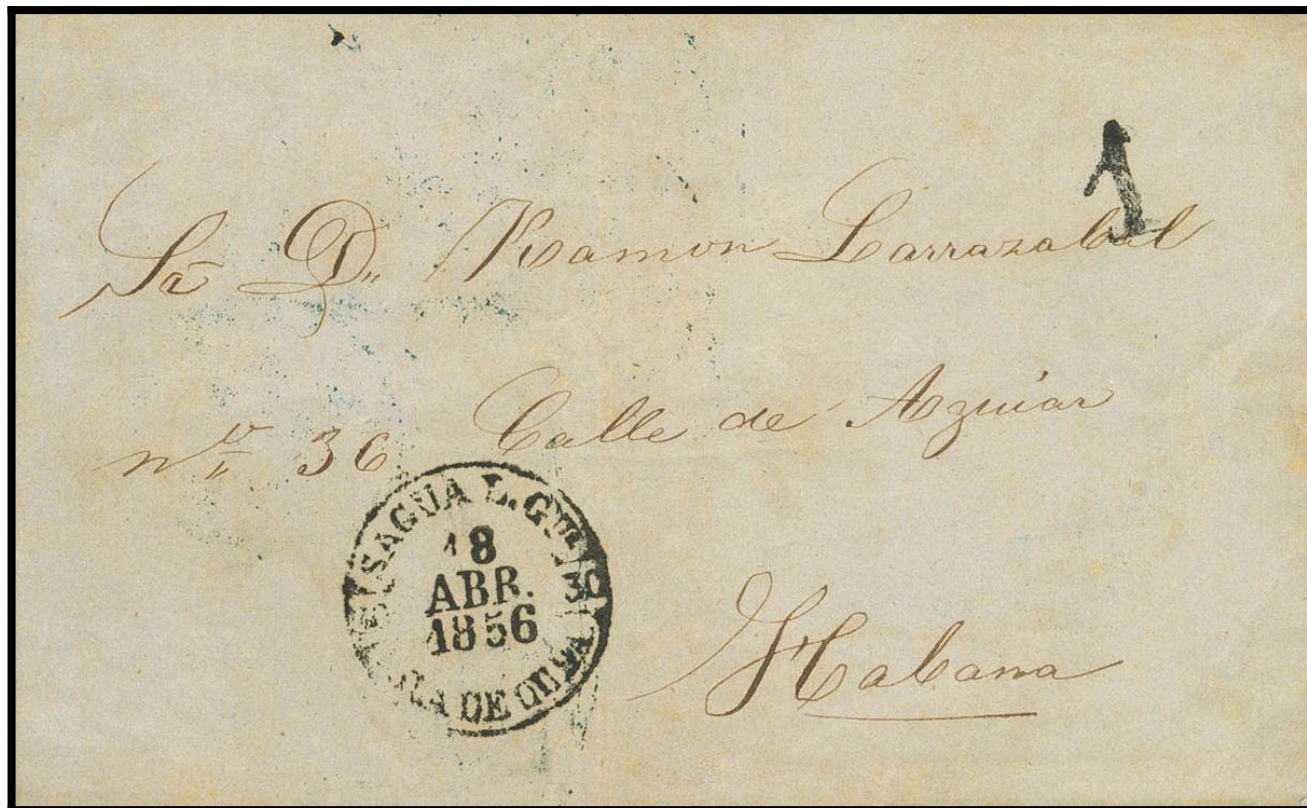 1
Sr. Dn. Ramon Larrazabal
no. 36 Calle de Aguiar
SAGUA L. G.
18
ABR. 30
1856
ISLA DE CUBA
Habana